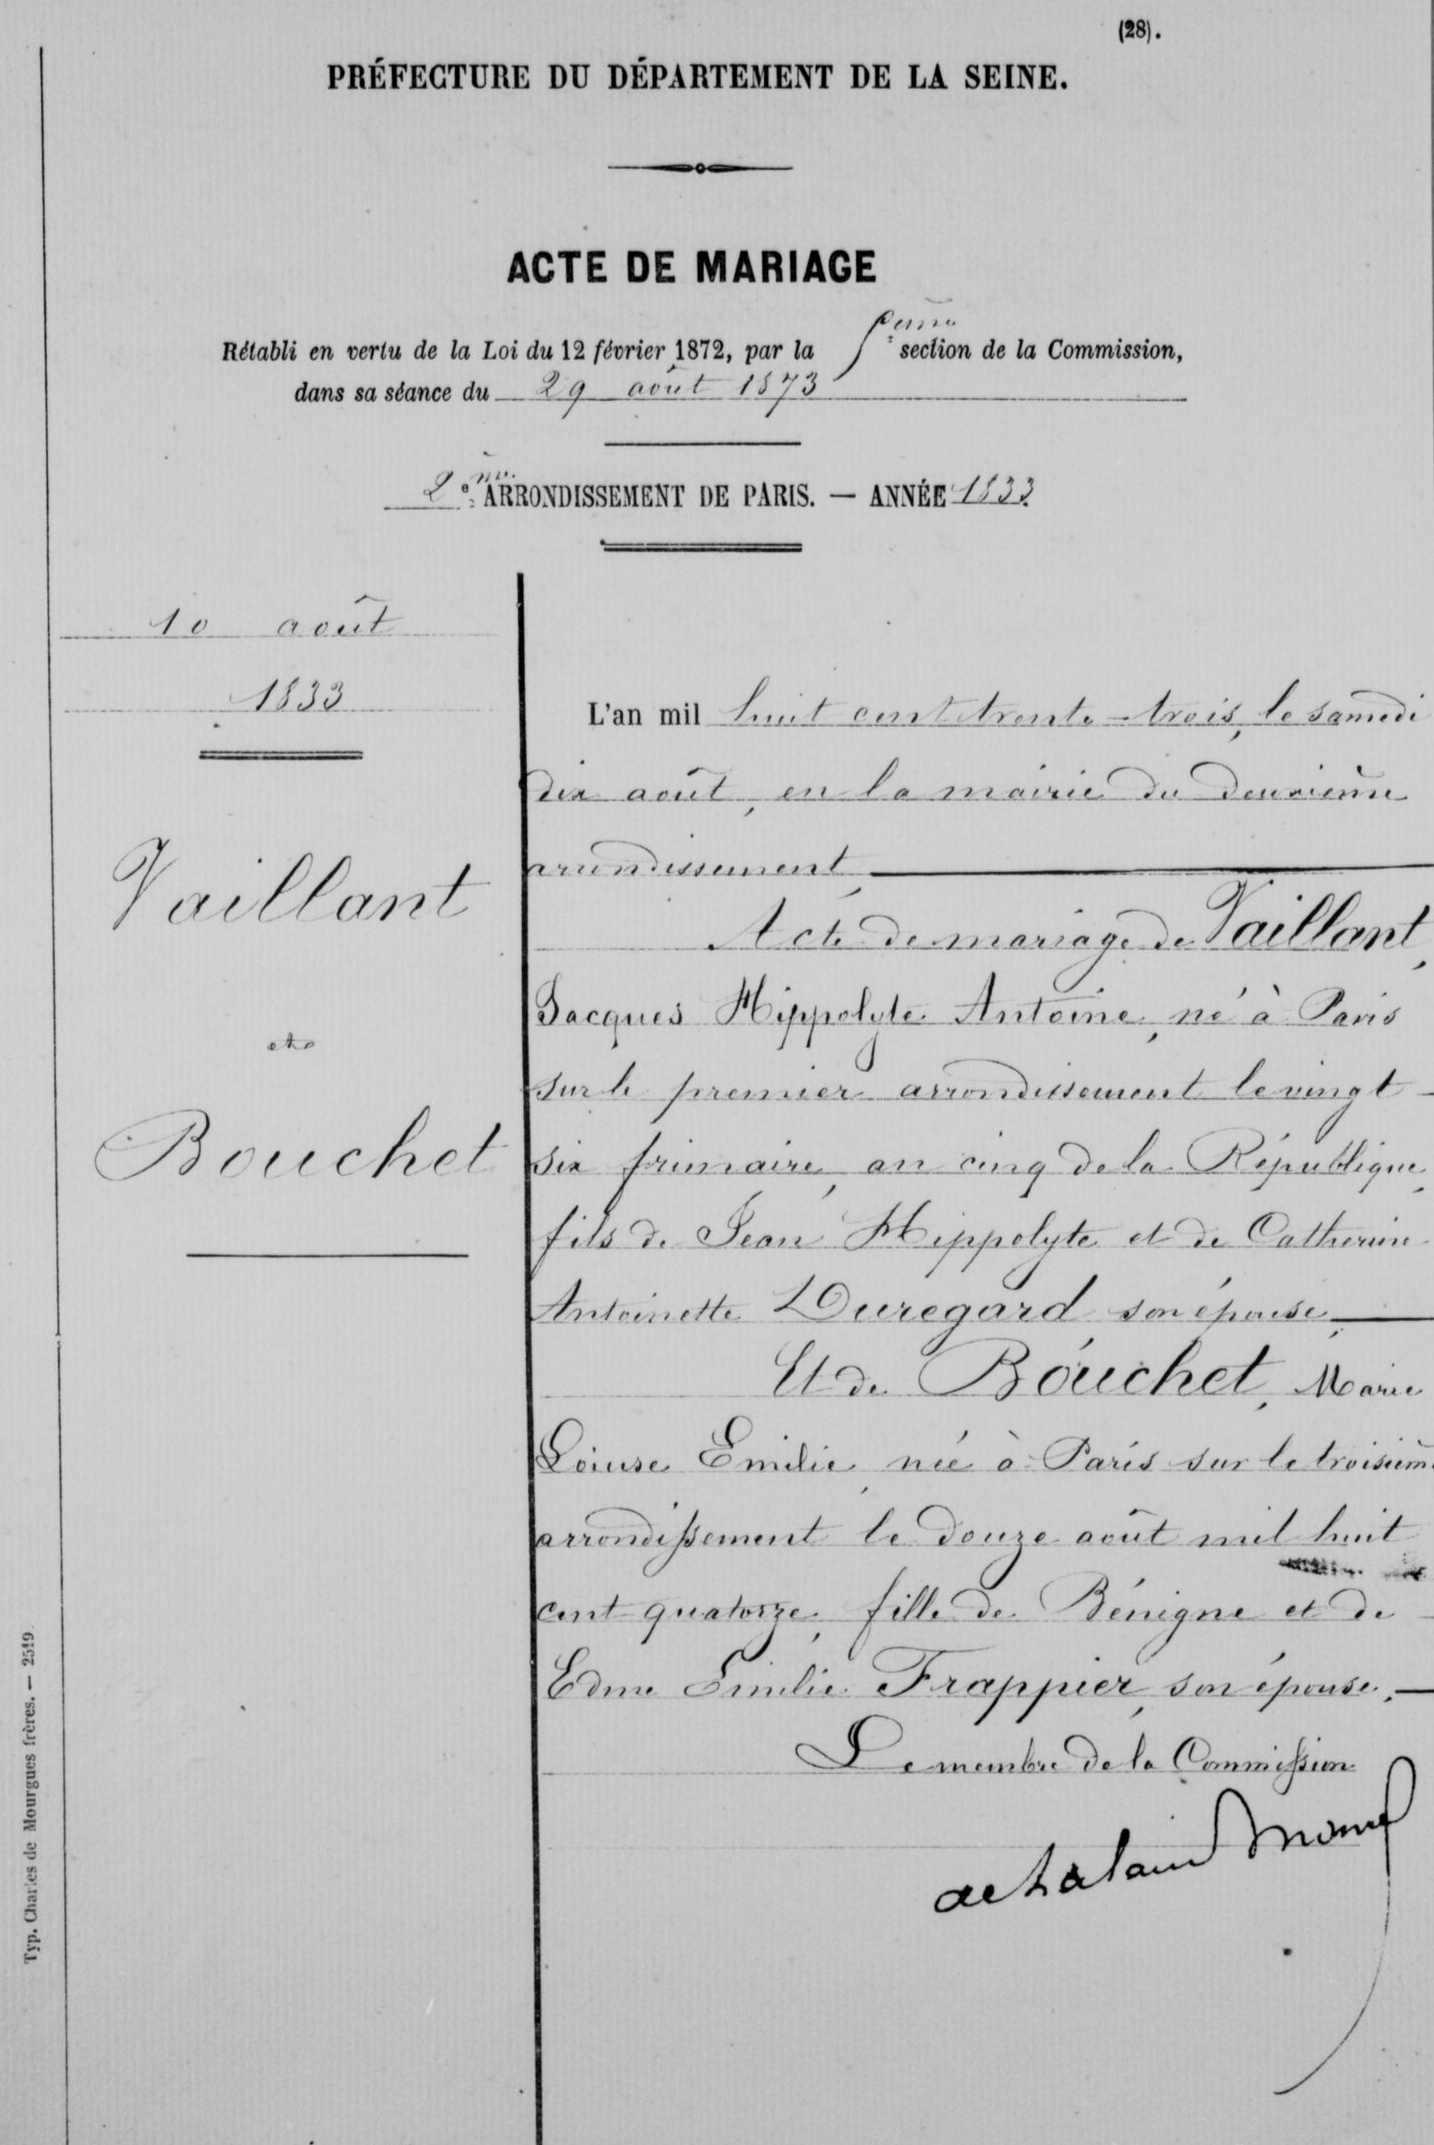 (28).
PRÉFECTURE DU DÉPARTEMENT DE LA SEINE.
ACTE DE MARIAGE
Rétabli en vertu de la Loi du 12 février 1872, par la section de la Commission,
dans sa séance du 29 août 1873
2e me ARRONDISSEMENT DE PARIS. — ANNÉE 1833
10 août
1833
Vaillant
et
Bouchet
L'an mil huit cent trente-trois, le samedi
dix août, en la mairie du deuxième
arrondissement,
Acte de mariage de Vaillant,
Jacques Hippolyte Antoine, né à Paris
sur le premier arrondissement le vingt-
six frimaire, an cinq de la République,
fils de Jean Hippolyte et de Catherine
Antoinette Duregard son épouse,
Et de Bouchet, Marie
Louise Emilie, née à Paris sur le troisième
arrondissement le douze août mil huit
cent quatorze, fille de Bénigne et de
Edme Emilie Frappier, son épouse.
Le membre de la Commission
Typ. Charles de Mourgues frères. — 2519